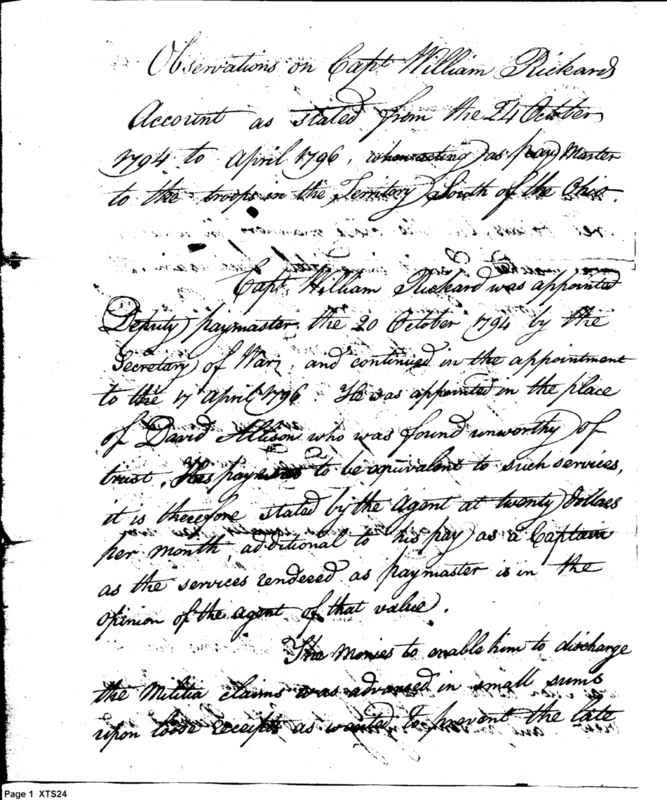 Observations on Capt. William Rickards
Account as stated from the 24 October
1794 to April 1796, when acting as pay Master
to the troops in the Territory South of the Ohio.
Capt. William Rickard was appointed
Deputy paymaster the 20 October 1794 by the
Secretary of War, and continued in the appointment
to the 17 April 1796. He was appointed in the place
of David Allison who was found unworthy of
trust. His pay was to be equivalent to such services,
it is therefore stated by the Agent at twenty Dollars
per month additional to his pay as a Captain
as the services rendered as paymaster is in the
opinion of the agent of that value.
The Monies to enable him to discharge
the Militia claims was advanced in small sums
upon loose receipts as wanted to prevent the late
Page 1 XTS24